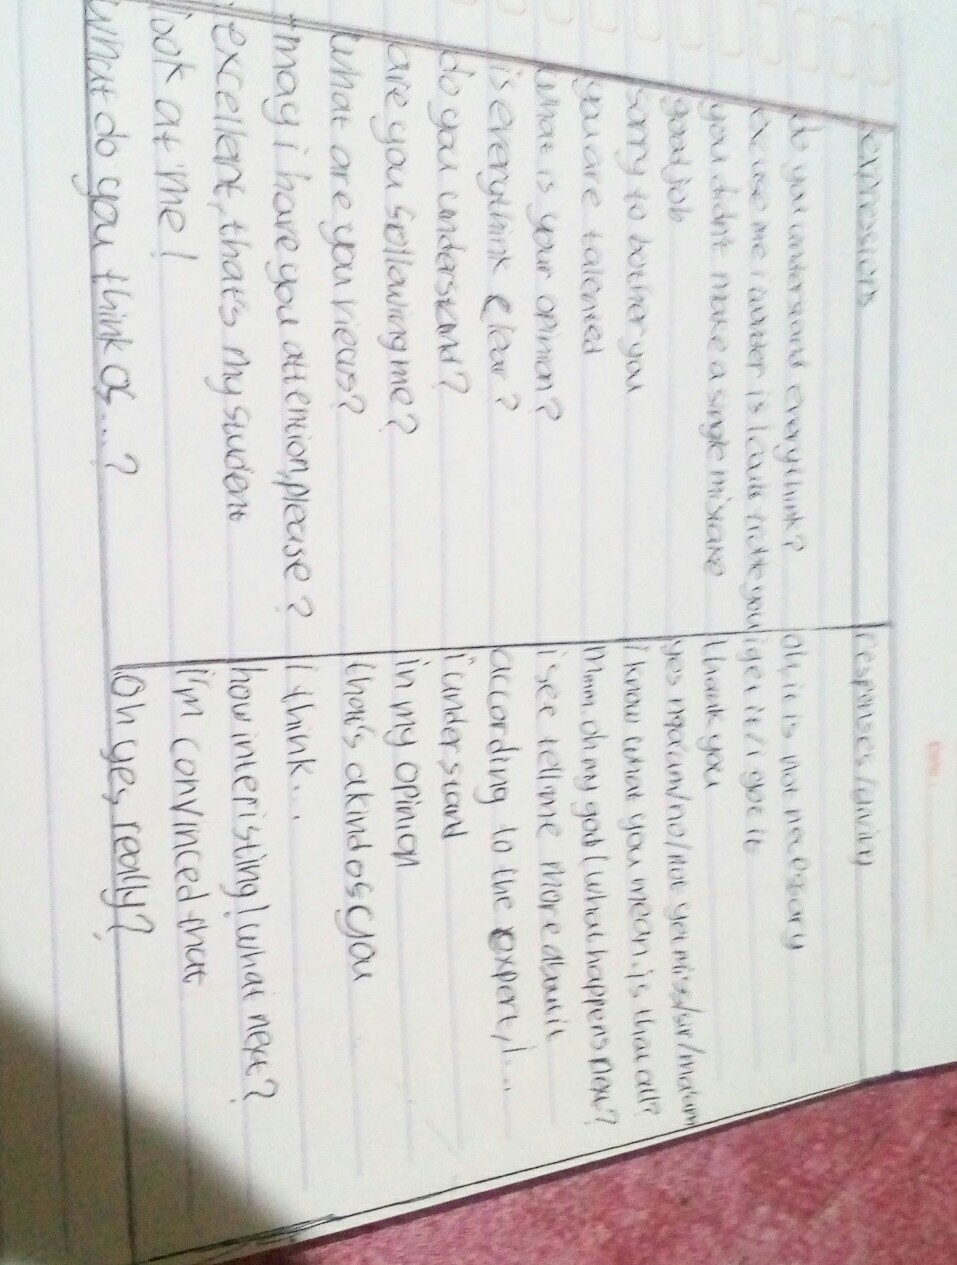 expresions responses/giving
do you understand everythink? oh, it is not necesary
excuse me i wonder is i could troble you i get it/i got it
you didn't make a single mistake thank you
good job yes madam/no/not yet miss/sir/madam
sorry to bother you i know what you mean is that all?
you are talented Mmm oh my gosh (what happens next?
what is your opinion? i see tell me more about it
is everythink clear? according to the expert, I...
do you understand? i understand
are you following me? in my opinion
what are you views? that's a kind of you
may i have you attention, please? i think...
excellent, that's my student how interisting! what next?
look at me! i'm convinced that
what do you think of...? Oh yes, really?